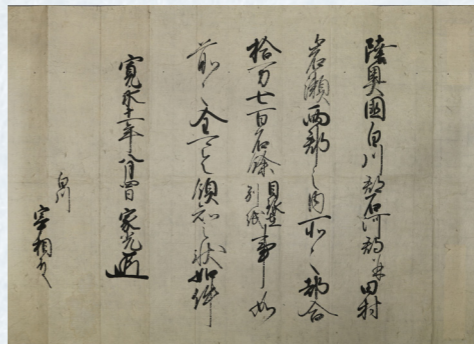 陸奥国白川郡石河郡并田村
岩瀬両郡之内所々都合
拾万七百石余目録在別紙事如
前々全可令領知之状如件
寛永十一年八月四日 家光
白川
宰相